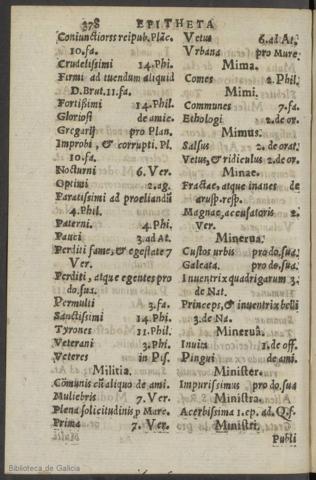 378 EPITHETA
Coniunctiores reipub. Plāc.
10. fa.
Crudelissimi 14. Phi.
Firmi ad tuendum aliquid
D. Brut. 11. fa.
Fortissimi 14. Phil.
Gloriosi de amic.
Gregarij pro Plan.
Improbi, & corrupti. Pl.
10. fa.
Nocturni 6. Ver.
Optimi 2. ag.
Paratissimi ad proeliandū
4. Phil.
Paterni. 4. Phi.
Pauci 3. ad At.
Perditi fame, & egestate 7
Ver.
Perditi, atque egentes pro
do. sua.
Permulti 3. fa.
Sanctissimi 14. Phi.
Tyrones 11. Phil.
Veterani 3. Phi.
Veteres in Pis.
Militia.
Cōmunis cū aliquo de ami.
Muliebris 7. Ver.
Plena solicitudinis p Mure.
Prima 7. Ver.
Vetus 6. ad At.
Vrbana pro Mure
Mima.
Comes 2. Phil.
Mimi.
Communes 7. fa.
Ethologi 2. de or.
Mimus.
Salsus 2. de orat.
Vetus, & ridiculus 2. de or.
Minae.
Fractae, atque inanes de
arusp. resp.
Magnae, accusatoris 2.
Ver.
Minerua.
Custos urbis pro do. sua.
Galeata. pro do. sua.
Inuentrix quadrigarum 3.
de Nat.
Princeps, & inuentrix belli
3. de Na.
Mineruâ.
Inuita 1. de off.
Pingui de ami.
Minister.
Impurissimus pro do. sua
Ministra.
Acerbissima 1. ep. ad. Q. f.
Ministri.
Publi
Biblioteca de Galicia